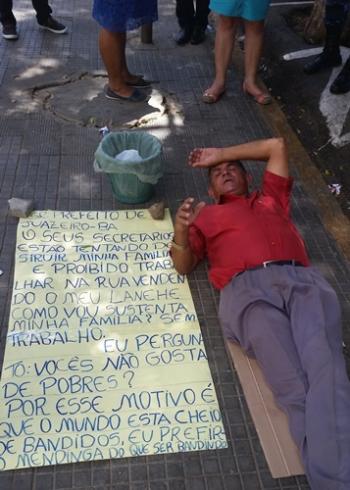 SR. PREFEITO DE
JUAZEIRO-BA
O SEUS SECRETARIOS
ESTÃO TENTANDO DE
STRUIR MINHA FAMILIA
E PROIBIDO TRABA
LHAR NA RUA VENDEN
DO O MEU LANCHE
COMO VOU SUSTENTA
MINHA FAMILIA? SEM
TRABALHO.
EU PERGUN
TO: VOCÊS NÃO GOSTA
DE POBRES?
POR ESSE MOTIVO É
QUE O MUNDO ESTA CHEIO
DE BANDIDOS, EU PREFIR
O MENDINGA DO QUE SER BANDINDO